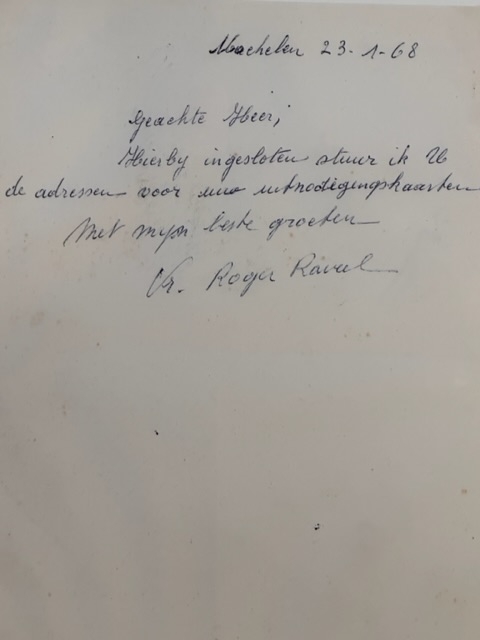 Machelen 23-1-68
Geachte Heer,
Hierby ingesloten stuur ik U
de adressen voor uw uitnodigingskaarten
Met mijn beste groeten
Vr. Roger Raveel